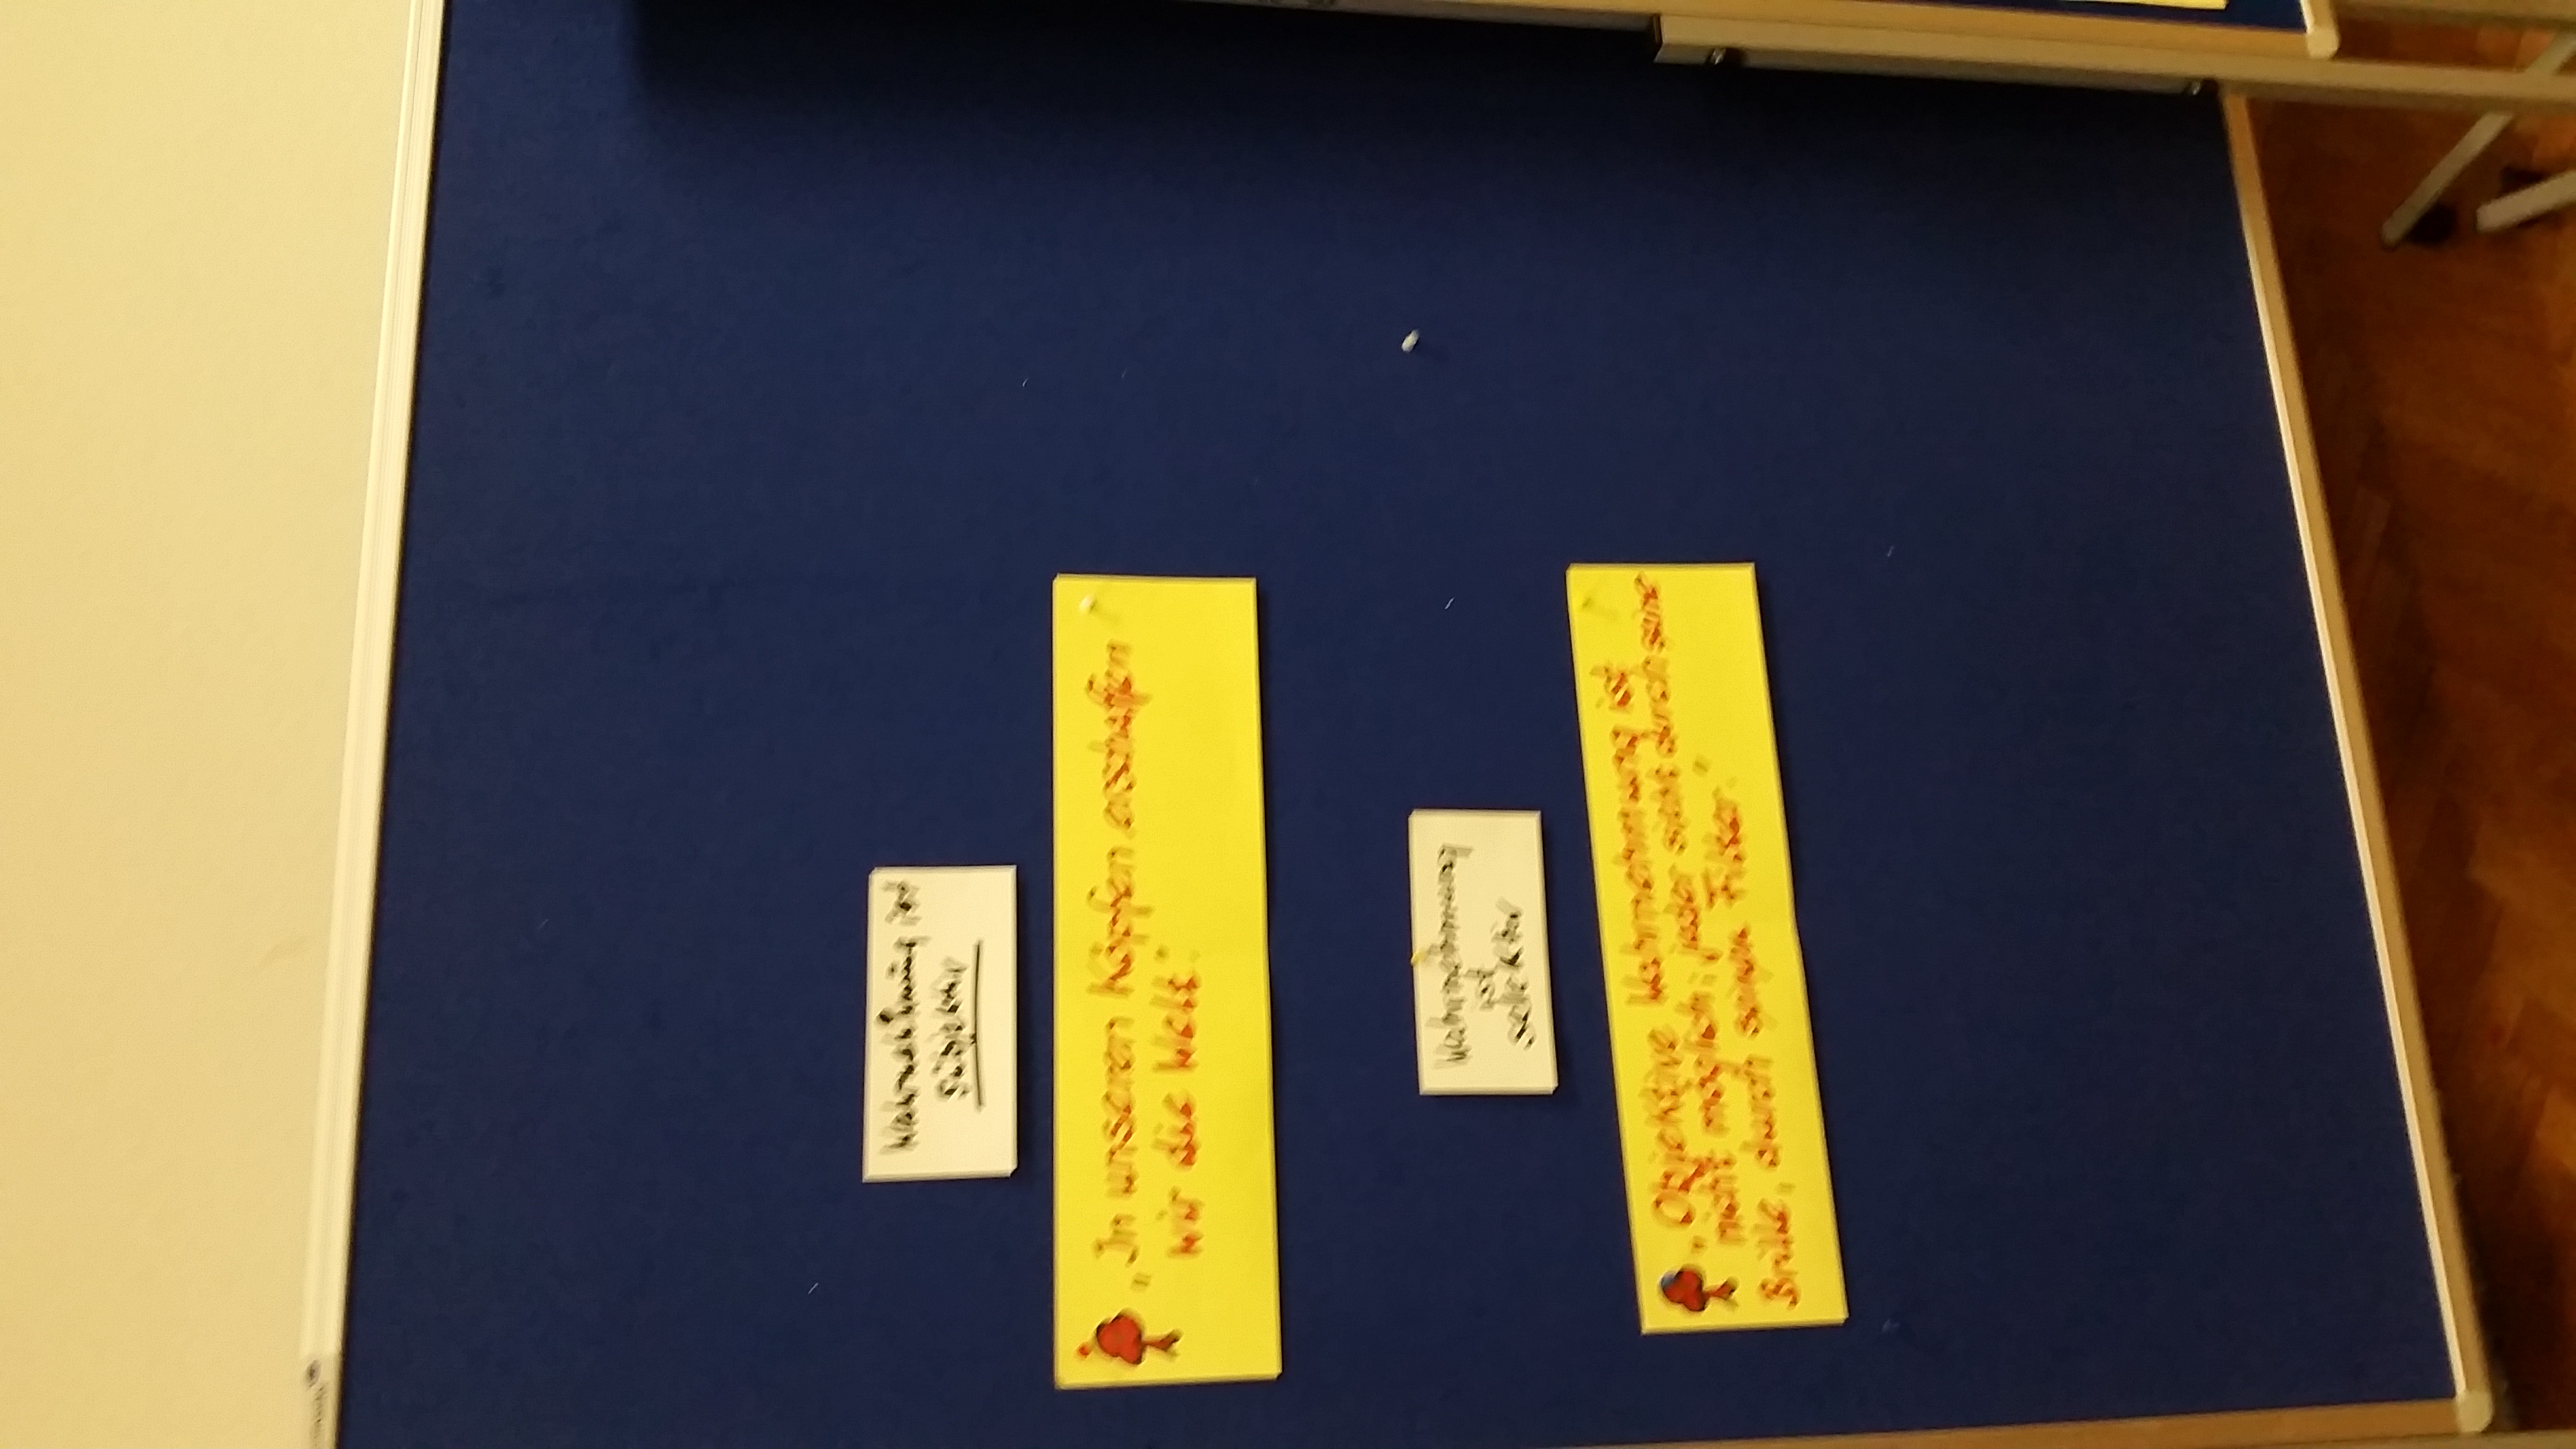 Wahrnehmung ist
subjektiv
„In unseren Köpfen erschaffen
wir die Welt."
Wahrnehmung
ist
selektiv
„Objektive Wahrnehmung ist
nicht möglich; jeder sieht durch seine
Brille, durch seinen Filter."